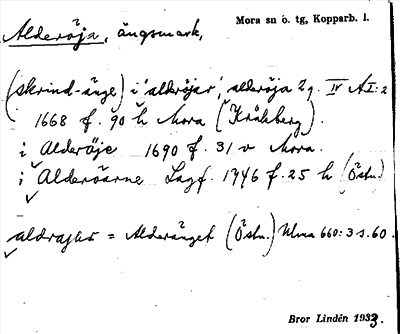 Alderöja, ängsmark,
Mora sn o. tg, Kopparb. l.
(skrind-änge) i 'alderöjar', alderöja 2g. IV A I:2
1668 f. 90 h Mora (Kråkberg).
i Alderöje 1690 f. 31 v Mora.
i Alderöarne Lagf. 1746 f. 25 h (Östn.)
= Alderänget (Östn.) Ulma 660:3 s. 60.
Bror Lindén 1933.